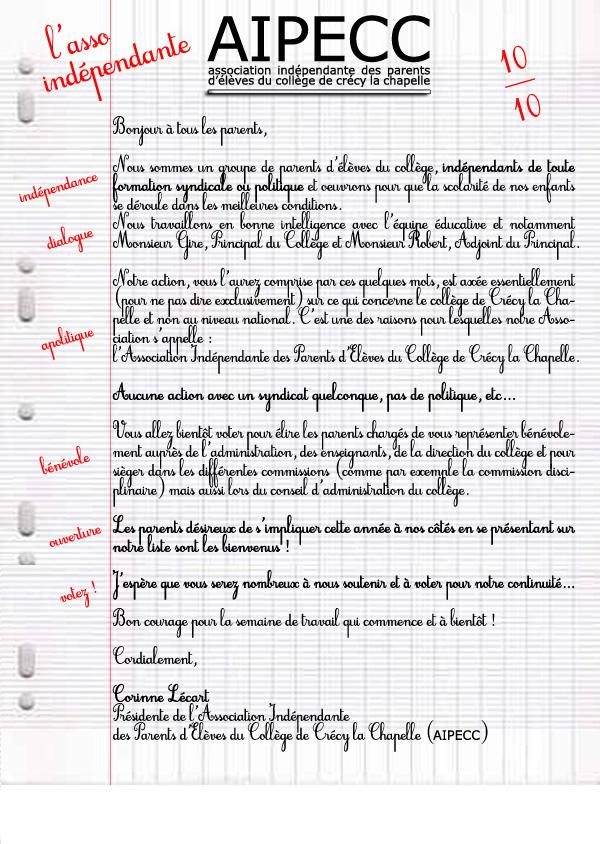 l'asso
indépendante
AIPECC
association indépendante des parents
d'élèves du collège de crécy la chapelle
10
10
Bonjour à tous les parents,
indépendance
Nous sommes un groupe de parents d'élèves du collège, indépendants de toute
formation syndicale ou politique et oeuvrons pour que la scolarité de nos enfants
se déroule dans les meilleures conditions.
dialogue
Nous travaillons en bonne intelligence avec l'équipe éducative et notamment
Monsieur Gire, Principal du Collège et Monsieur Robert, Adjoint du Principal.
Notre action, vous l'aurez comprise par ces quelques mots, est axée essentiellement
(pour ne pas dire exclusivement) sur ce qui concerne le collège de Crécy la Cha-
pelle et non au niveau national. C'est une des raisons pour lesquelles notre Asso-
apolitique
ciation s'appelle :
l'Association Indépendante des Parents d'Elèves du Collège de Crécy la Chapelle.
Aucune action avec un syndicat quelconque, pas de politique, etc...
Vous allez bientôt voter pour élire les parents chargés de vous représenter bénévole-
ment auprès de l'administration, des enseignants, de la direction du collège et pour
bénévole
sièger dans les différentes commissions (comme par exemple la commission disci-
plinaire) mais aussi lors du conseil d'administration du collège.
ouverture
Les parents désireux de s'impliquer cette année à nos côtés en se présentant sur
notre liste sont les bienvenus !
votez !
J'espère que vous serez nombreux à nous soutenir et à voter pour notre continuité...
Bon courage pour la semaine de travail qui commence et à bientôt !
Cordialement,
Corinne Lécart
Présidente de l'Association Indépendante
des Parents d'Elèves du Collège de Crécy la Chapelle (AIPECC)